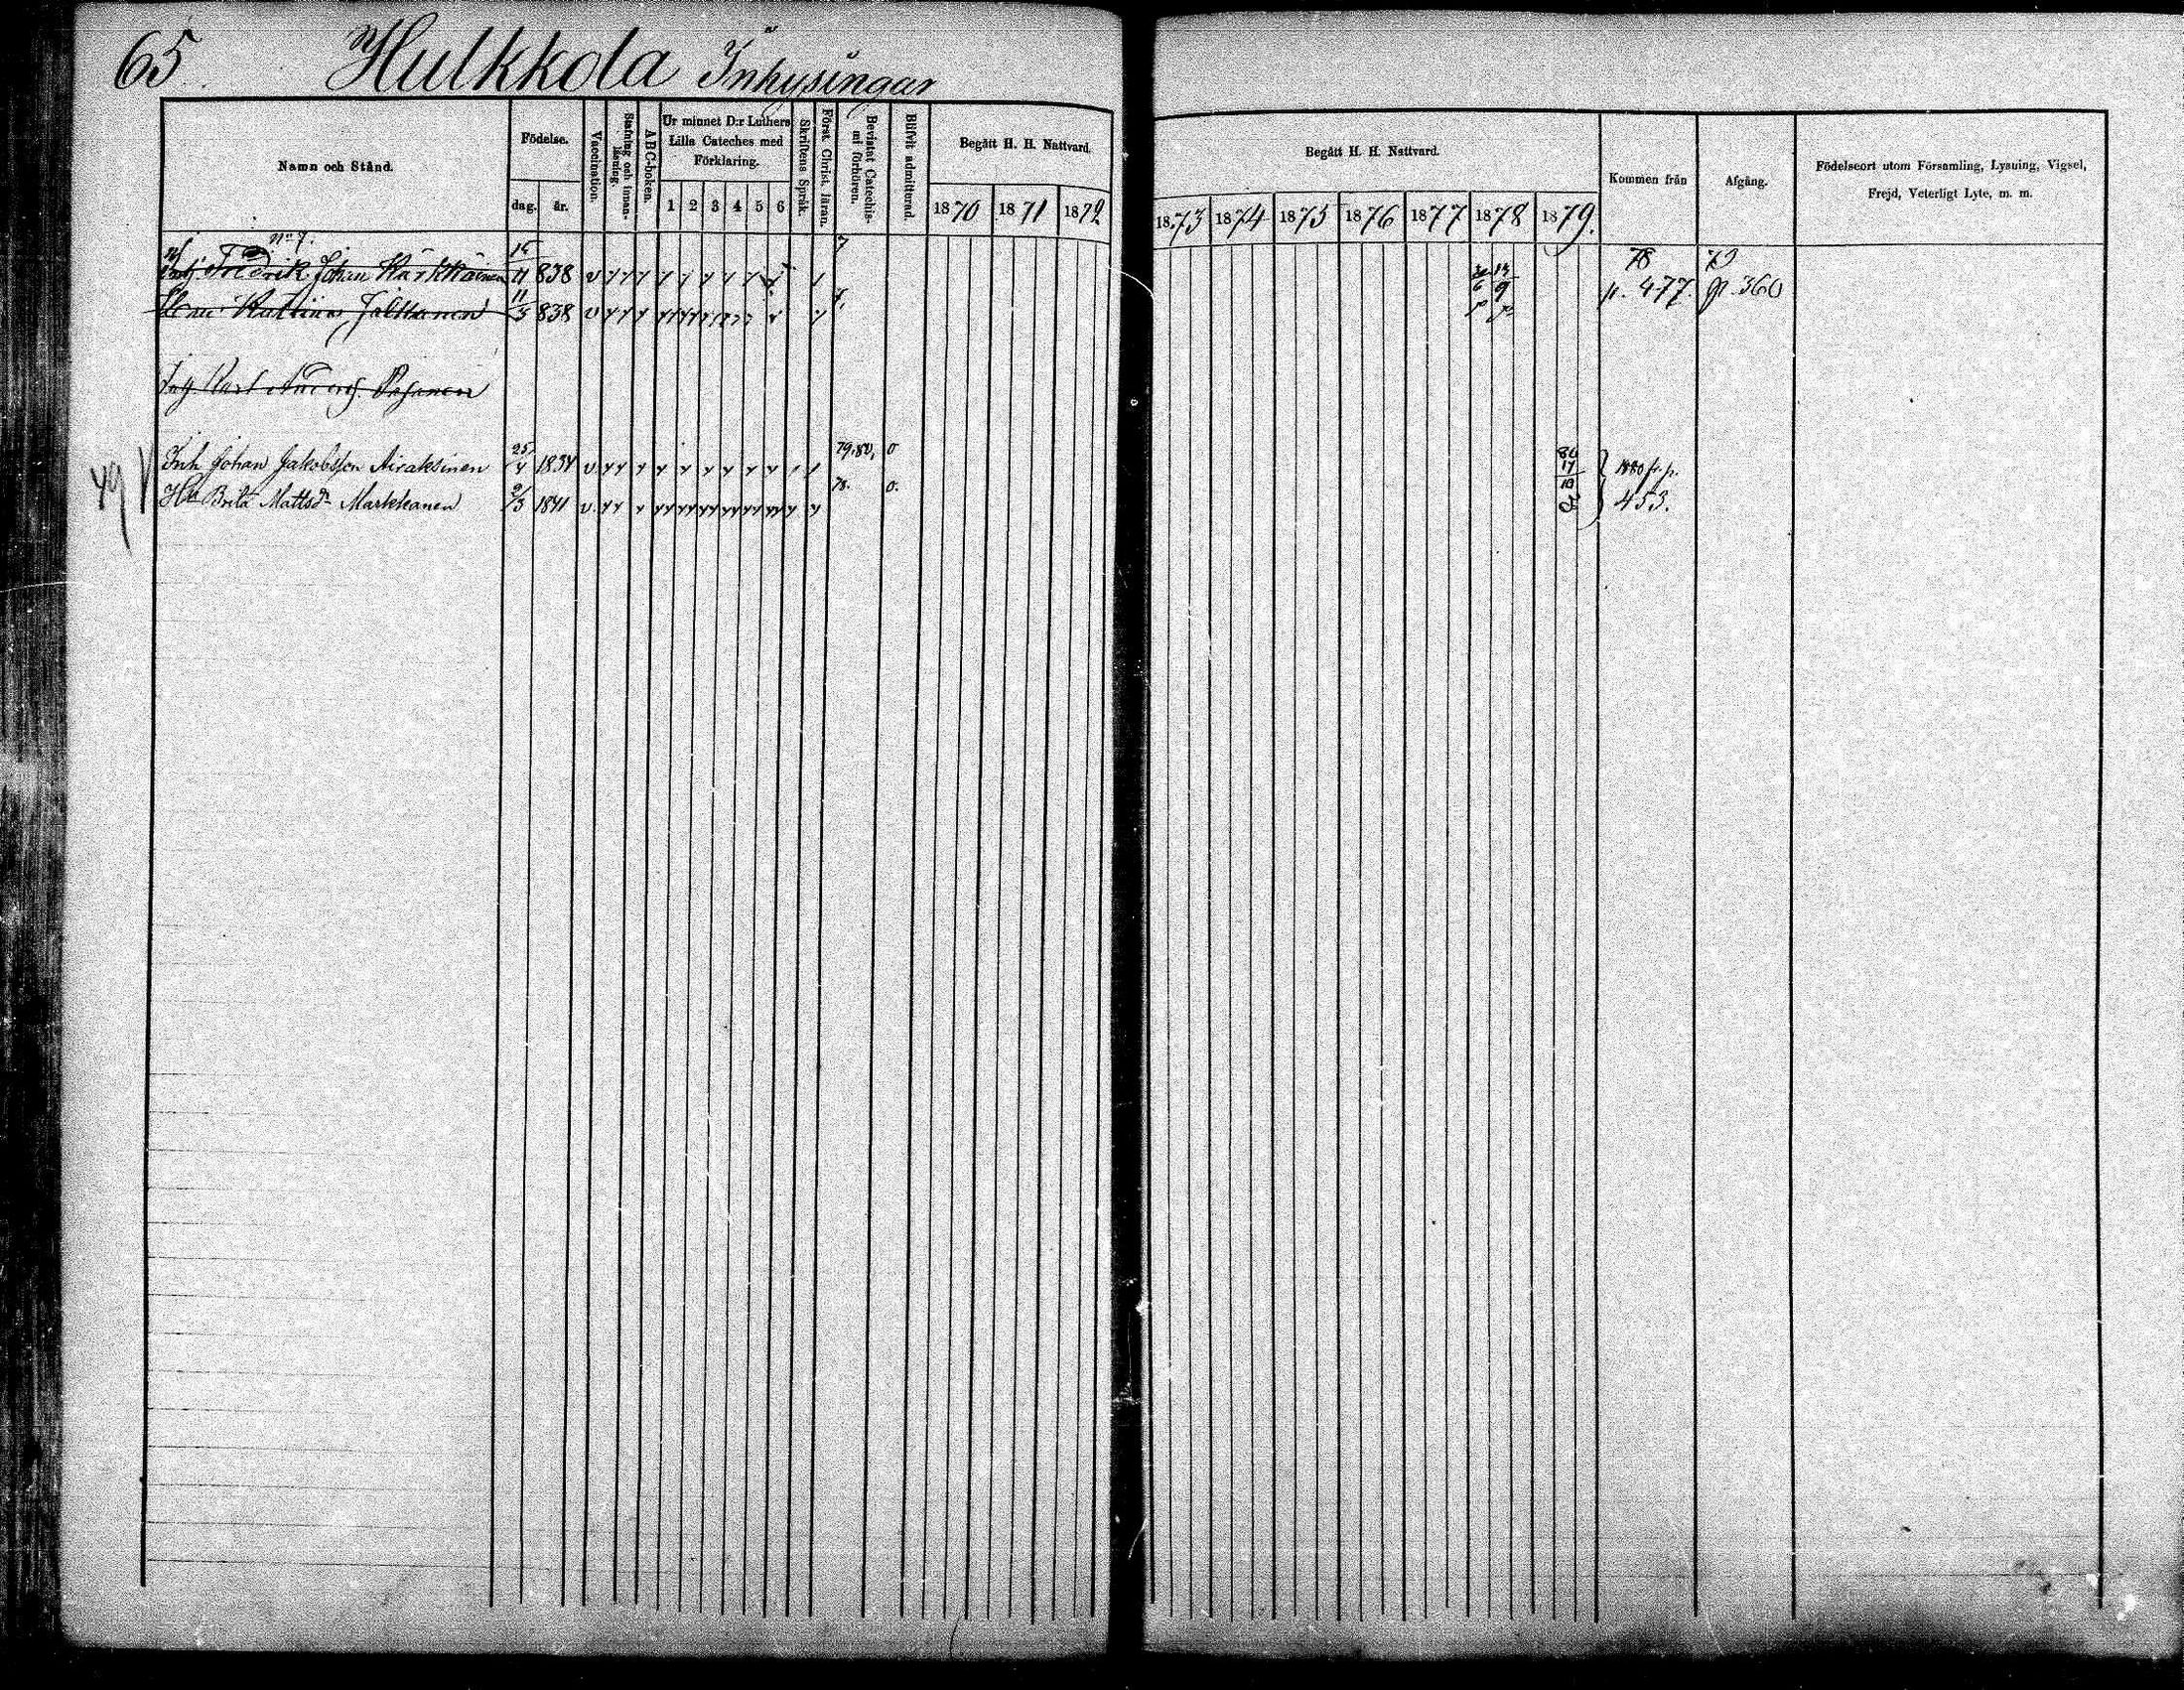 65. Hulkkola Inhysingar
Namn och Stånd.
Födelse.
dag. år.
Vaccination.
Stafning och innanläsning.
ABC-boken.
Ur minnet D:r Luthers Lilla Cateches med Förklaring.
1 2 3 4 5 6
Skriftens Språk.
Först. Christ. läran.
Bevistat Catechismi förhören.
Blifvit admitterad.
Begått H. H. Nattvard.
1870 1871 1872
Begått H. H. Nattvard.
1873 1874 1875 1876 1877 1878 1879.
Kommen från
Afgång.
Födelseort utom Församling, Lysning, Vigsel,
Frejd, Veterligt Lyte, m. m.
No 7.
Fredrik Johan Kärkkäinen 15/11 838 78 p. 477. 79 p. 360
11/3 838
Inh Johan Jakobsson Airaksinen 25/4 1834 v 79.80, 0 1880 fr. p.
49 Hu Brita Mattsdr Markkanen 2/3 1841 v. 78. 0. 453.